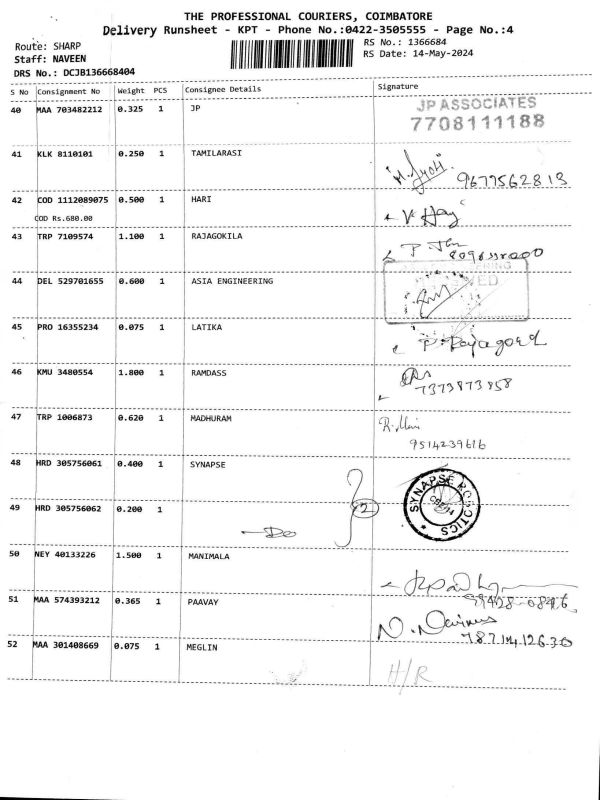 THE PROFESSIONAL COURIERS, COIMBATORE
Delivery Runsheet - KPT - Phone No.:0422-3505555 - Page No.:4
Route: SHARP
RS No.: 1366684
Staff: NAVEEN
RS Date: 14-May-2024
DRS No.: DCJB136668404
S No Consignment No Weight PCS Consignee Details Signature
40 MAA 703482212 0.325 1 JP JP ASSOCIATES
7708111188
41 KLK 8110101 0.250 1 TAMILARASI
9677562813
42 COD 1112089075 0.500 1 HARI
COD Rs.680.00
43 TRP 7109574 1.100 1 RAJAGOKILA
44 DEL 529701655 0.600 1 ASIA ENGINEERING
45 PRO 16355234 0.075 1 LATIKA
46 KMU 3480554 1.800 1 RAMDASS
7373873858
47 TRP 1006873 0.620 1 MADHURAM
9514239616
48 HRD 305756061 0.400 1 SYNAPSE SYNAPSE ROBOTICS
49 HRD 305756062 0.200 1 Do 2
50 NEY 40133226 1.500 1 MANIMALA
51 MAA 574393212 0.365 1 PAAVAY
52 MAA 301408669 0.075 1 MEGLIN
H/R